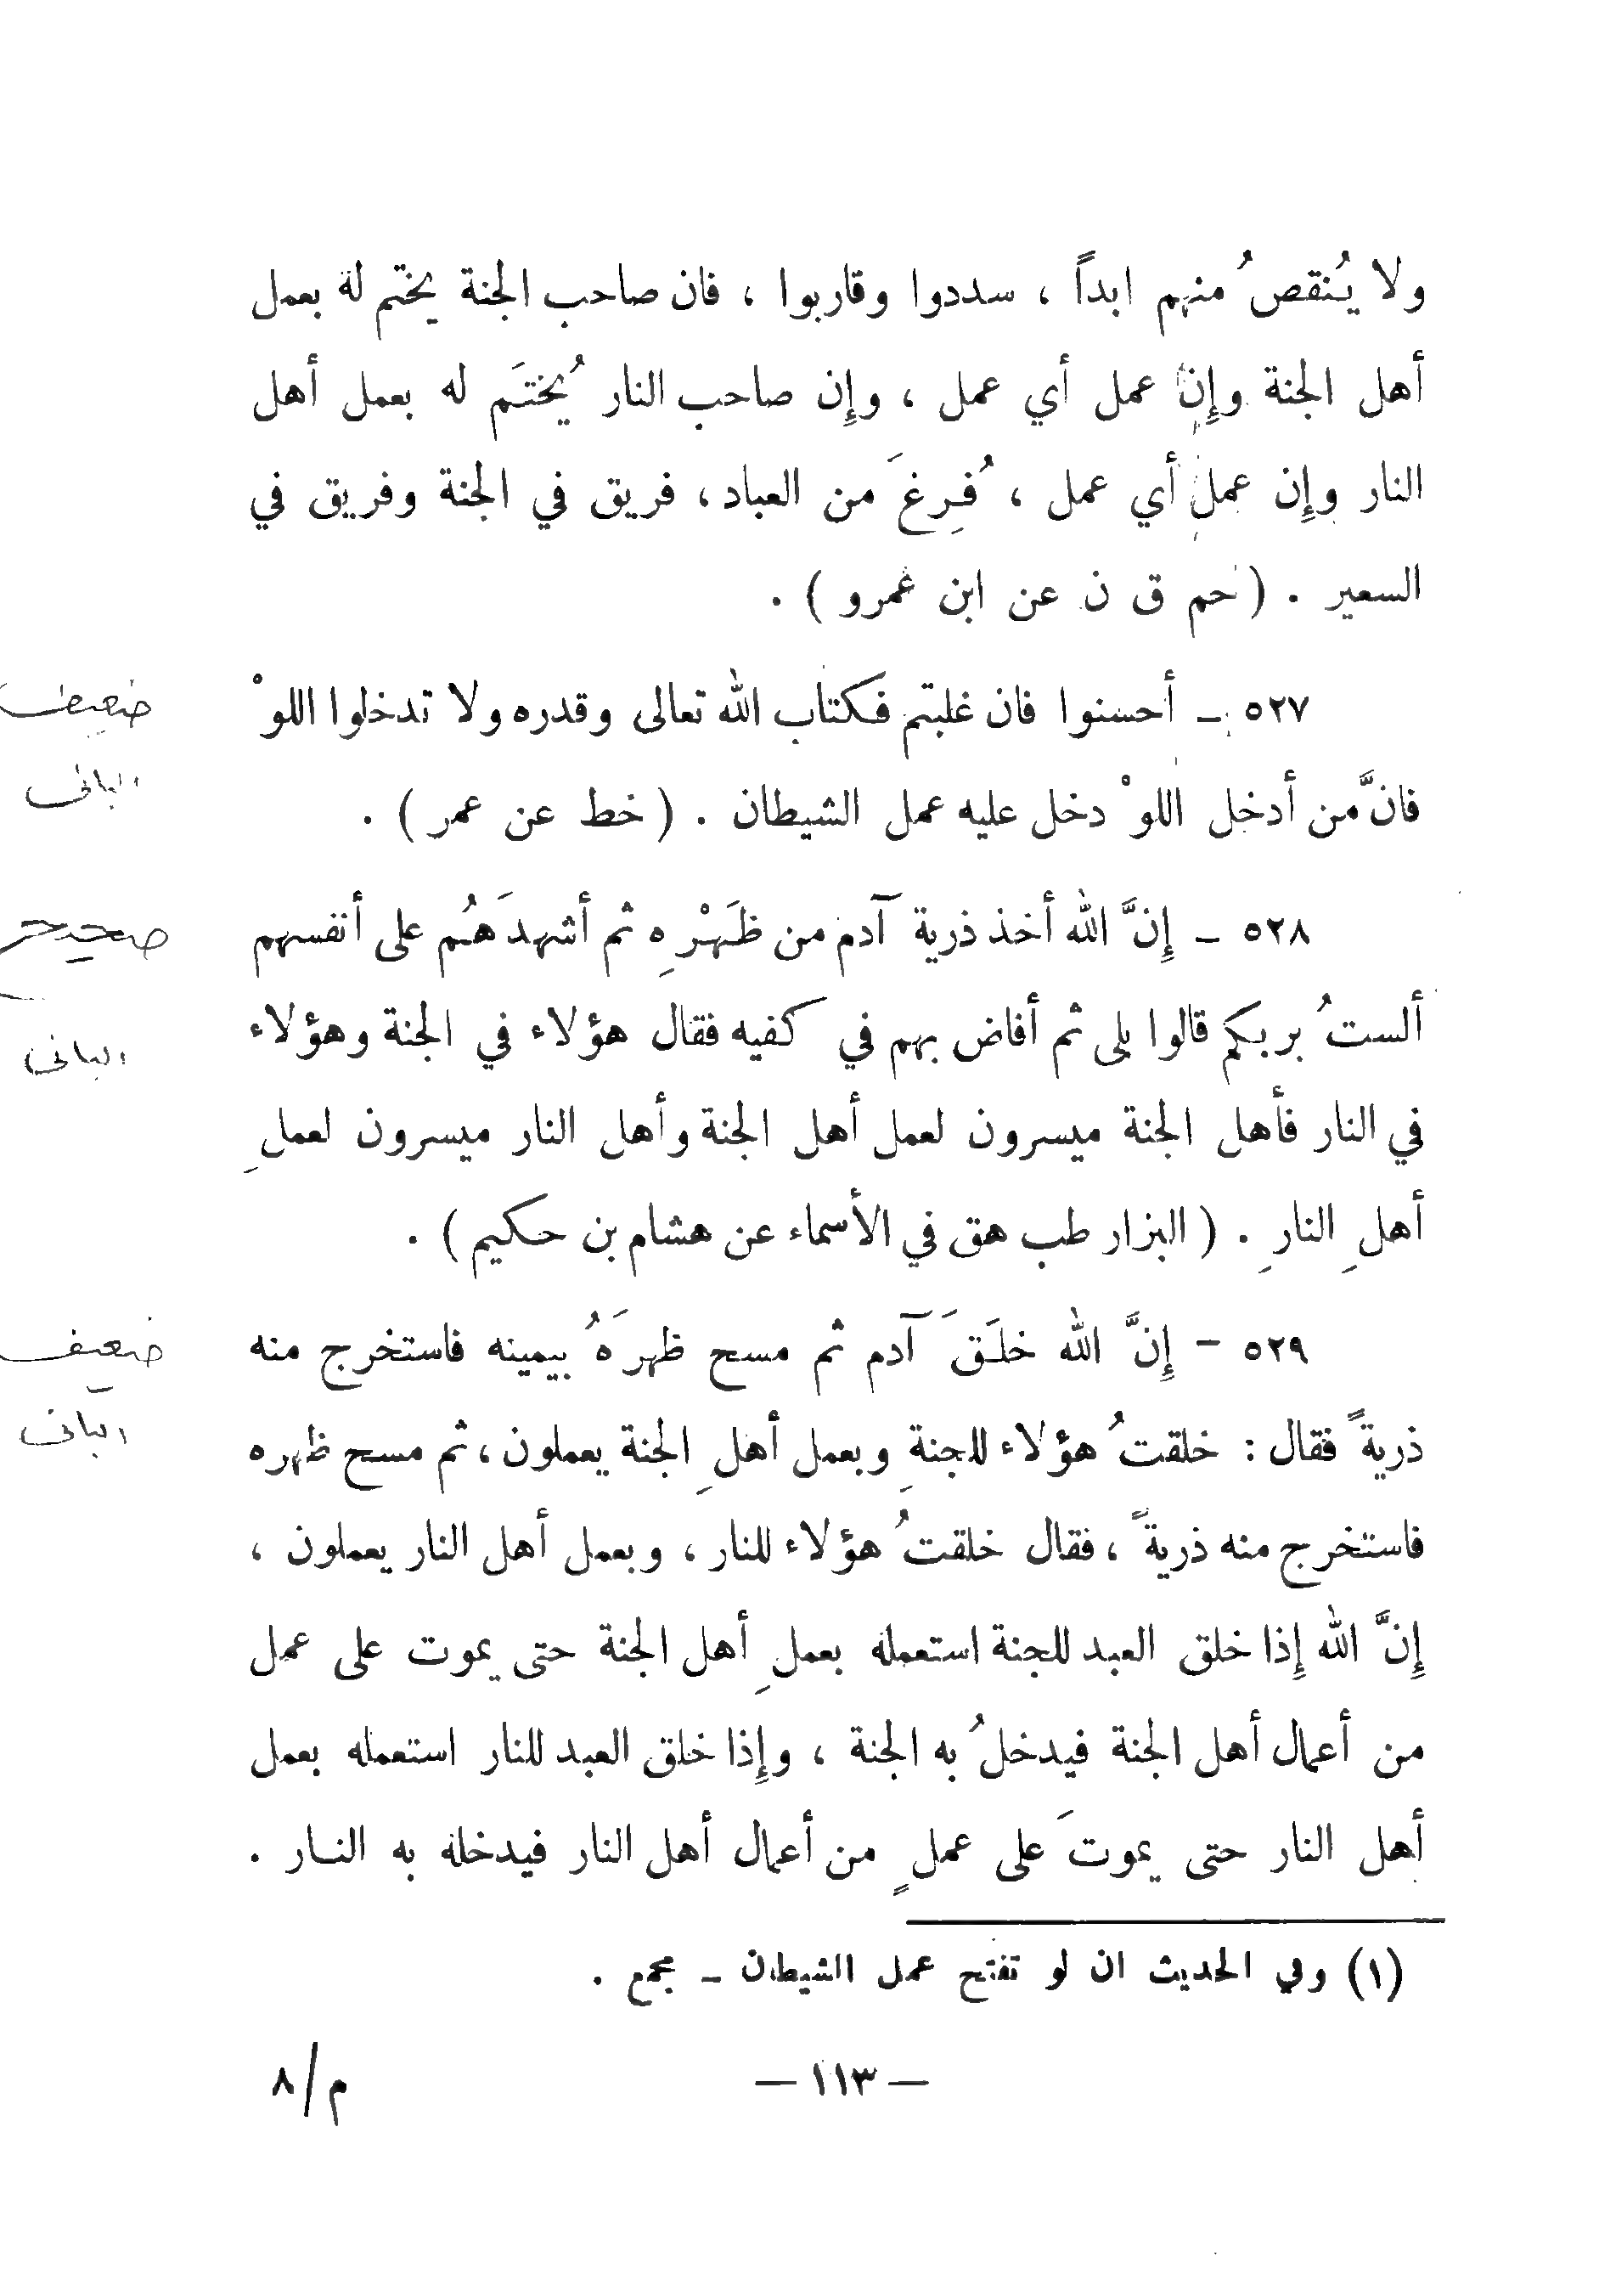 ولا يُنقصُ منهم ابداً ، سددوا وقاربوا ، فان صاحب الجنة يختم له بعمل
أهل الجنة وإن عمل أي عمل ، وإن صاحب النار يُختَم له بعمل أهل
النار وإن عمل أي عمل ، فُرِغَ من العباد ، فريق في الجنة وفريق في
السعير . ( حم ق ن عن ابن عمرو ) .
٥٢٧ - أحسنوا فان غلبتم فكتاب الله تعالى وقدره ولا تدخلوا اللوْ
ضعيف
فانَّ من أدخل اللوْ دخل عليه عمل الشيطان . ( خط عن عمر ) .
البانى
٥٢٨ - إِنَّ الله أخذ ذرية آدم من ظَهْرِه ثم أشهدَهُم على أنفسهم
صحيح
ألستُ بربكم قالوا بلى ثم أفاض بهم في كفيه فقال هؤلاء في الجنة وهؤلاء
البانى
في النار فأهل الجنة ميسرون لعمل أهل الجنة وأهل النار ميسرون لعملِ
أهلِ النارِ . ( البزار طب هق في الأسماء عن هشام بن حكيم ) .
٥٢٩ - إِنَّ الله خلَقَ آدم ثم مسح ظهرَهُ بيمينه فاستخرج منه
ضعيف
ذريةً فقال : خلقتُ هؤلاء للجنةِ وبعمل أهلِ الجنة يعملون ، ثم مسح ظهره
البانى
فاستخرج منه ذريةً ، فقال خلقتُ هؤلاء للنار ، وبعمل أهل النار يعملون ،
إِنَّ الله إِذا خلق العبد للجنة استعمله بعملِ أهل الجنة حتى يموت على عمل
من أعمال أهل الجنة فيدخلُ به الجنة ، وإِذا خلق العبد للنار استعمله بعمل
أهل النار حتى يموتَ على عملٍ من أعمال أهل النار فيدخله به النـار .
(١) وفي الحديث ان لو تفتح عمل الشيطان - مجمع .
— ١١٣ —
م/٨